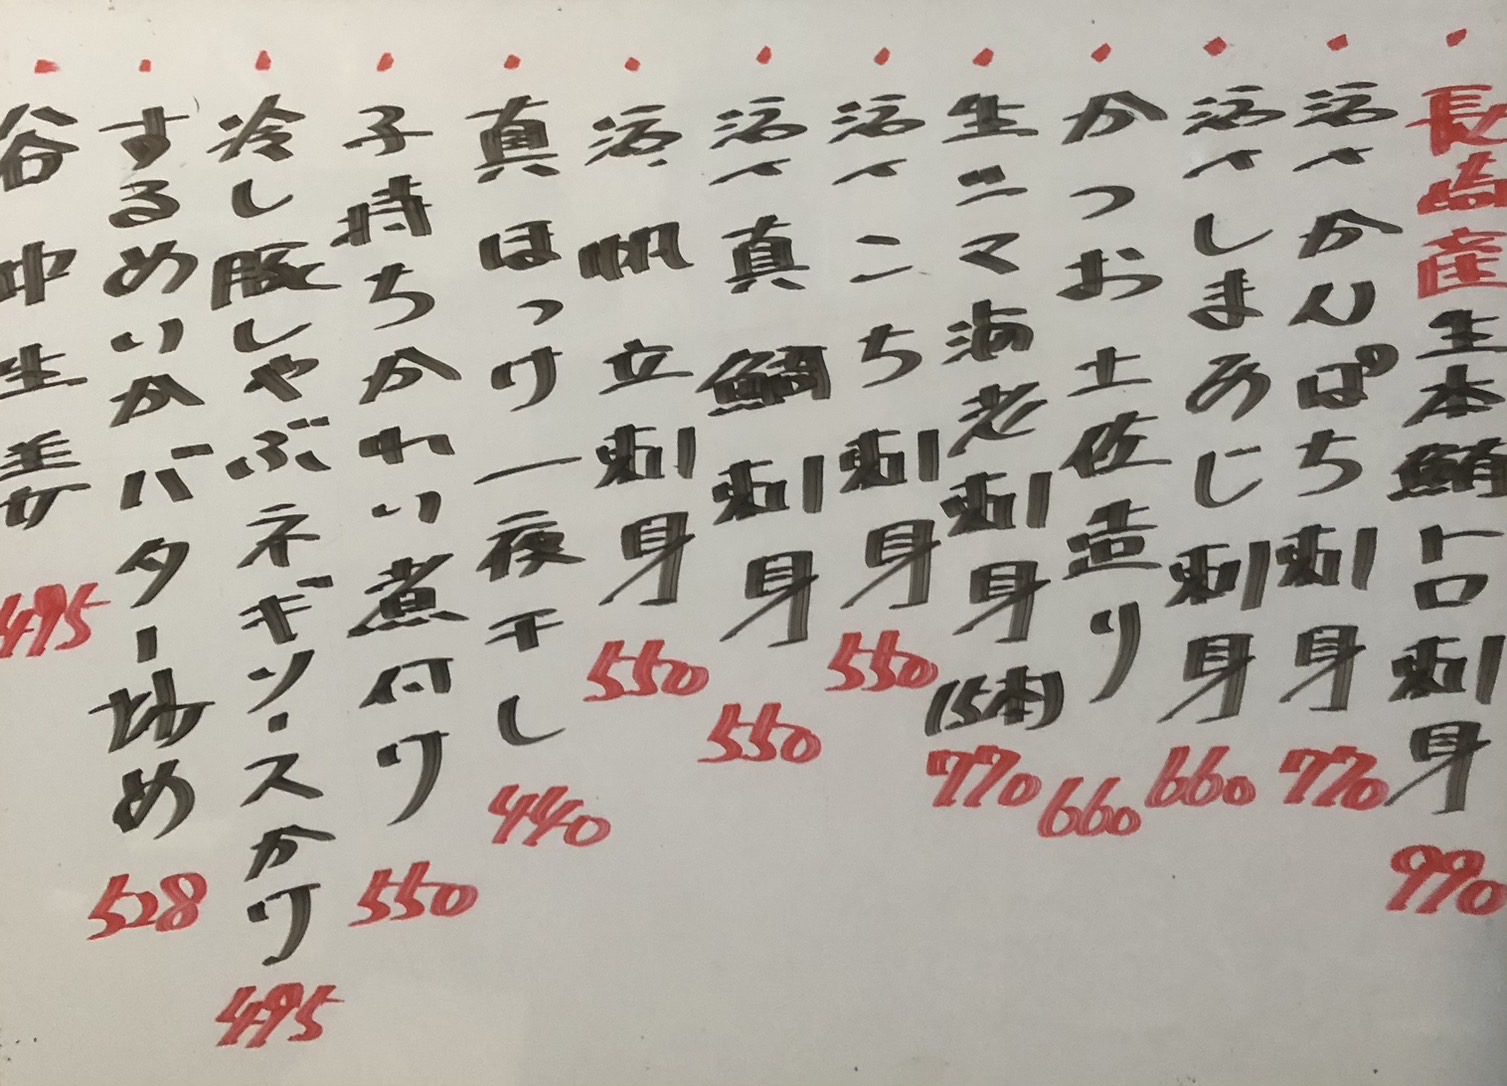 ・長崎産生本鮪トロ刺身 990
・活〆かんぱち刺身 770
・活〆しまあじ刺身 660
・かつお土佐造り 660
・生ニマ海老刺身(5本) 770
・活〆こち刺身 550
・活〆真鯛刺身 550
・活帆立刺身 550
・真ほっけ一夜干し 440
・子持ちかれい煮付け 550
・冷し豚しゃぶネギソースかけ 495
・するめいかバター炒め 528
・谷中生姜 495